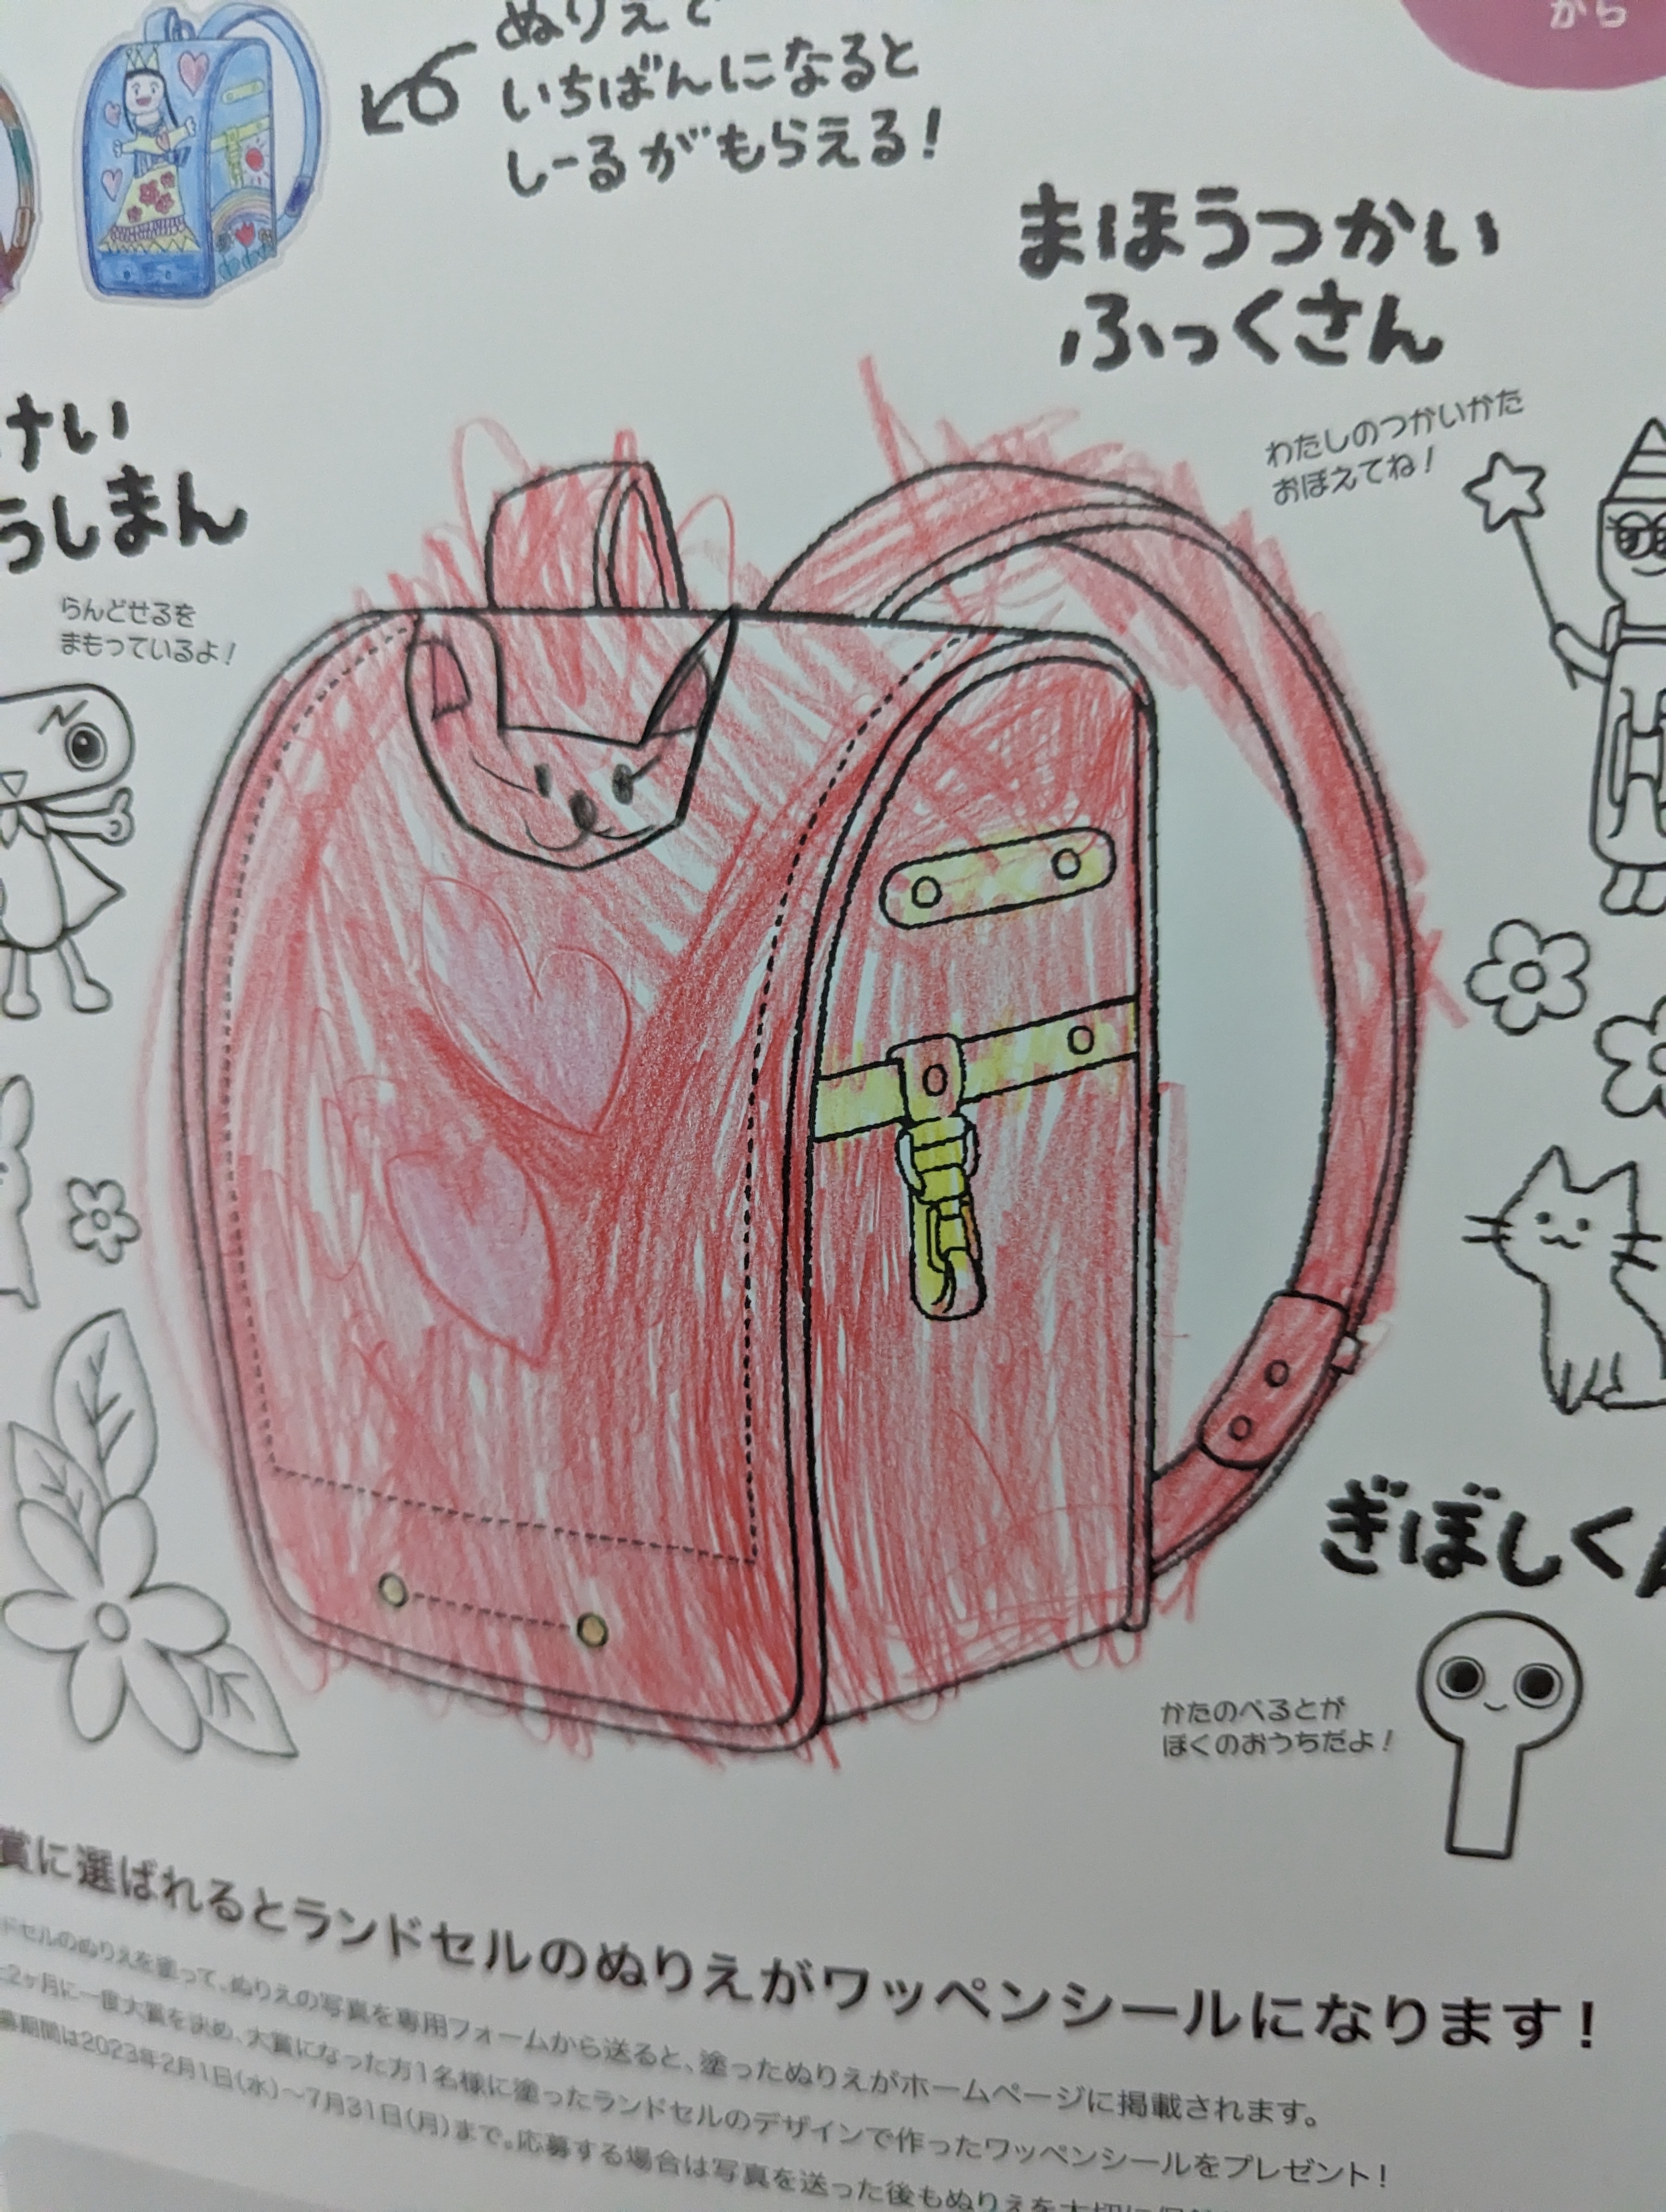 から
ぬりえで
いちばんになると
しーるがもらえる!
まほうつかい
ふっくさん
わたしのつかいかた
おぼえてね!
けい
うしまん
らんどせるを
まもっているよ!
ぎぼしくん
かたのべるとが
ぼくのおうちだよ!
賞に選ばれるとランドセルのぬりえがワッペンシールになります!
ドセルのぬりえを塗って、ぬりえの写真を専用フォームから送ると、塗ったぬりえがホームページに掲載されます。
2ヶ月に一度大賞を決め、大賞になった方1名様に塗ったランドセルのデザインで作ったワッペンシールをプレゼント!
募期間は2023年2月1日(水)〜7月31日(月)まで。応募する場合は写真を送った後もぬりえを大切に